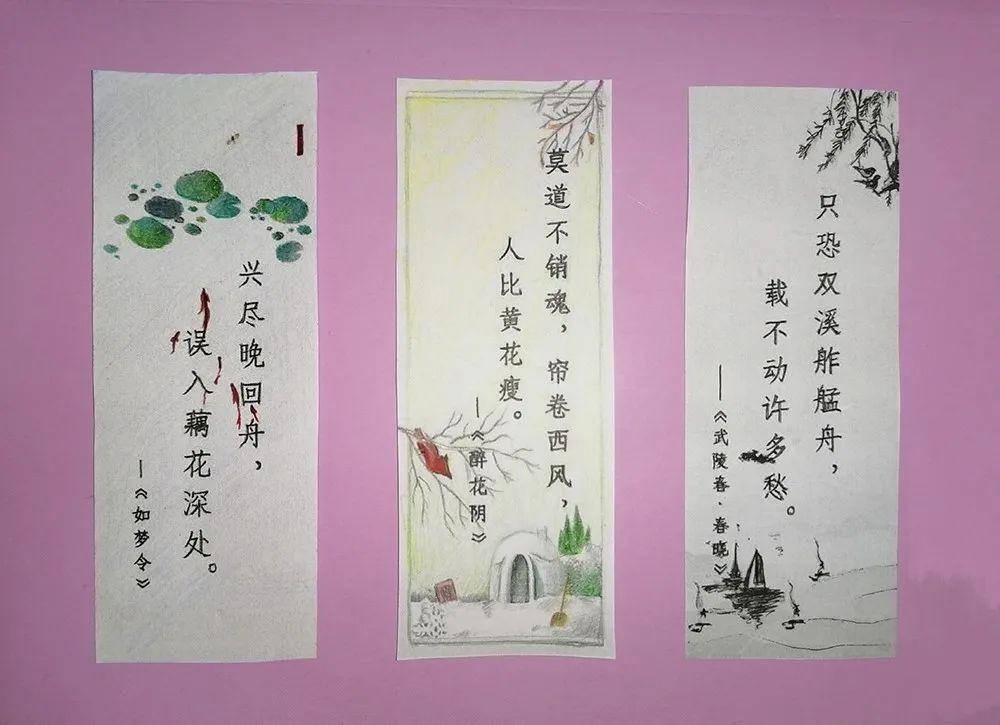 兴尽晚回舟，
误入藕花深处。
—《如梦令》
莫道不销魂，帘卷西风，
人比黄花瘦。
—《醉花阴》
只恐双溪舴艋舟，
载不动许多愁。
——《武陵春·春晓》